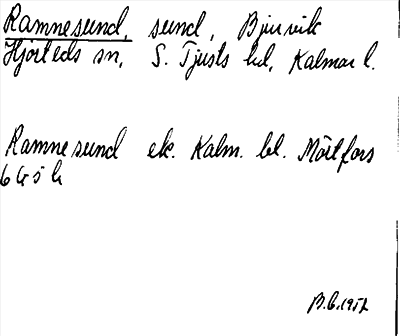 Ramnesund, sund, Bjurvik
Hjorteds sn, S. Tjusts hd, Kalmar l.
Ramnesund ek. Kalm. bl. Mörtfors
6 G ö h
B.G. 1952